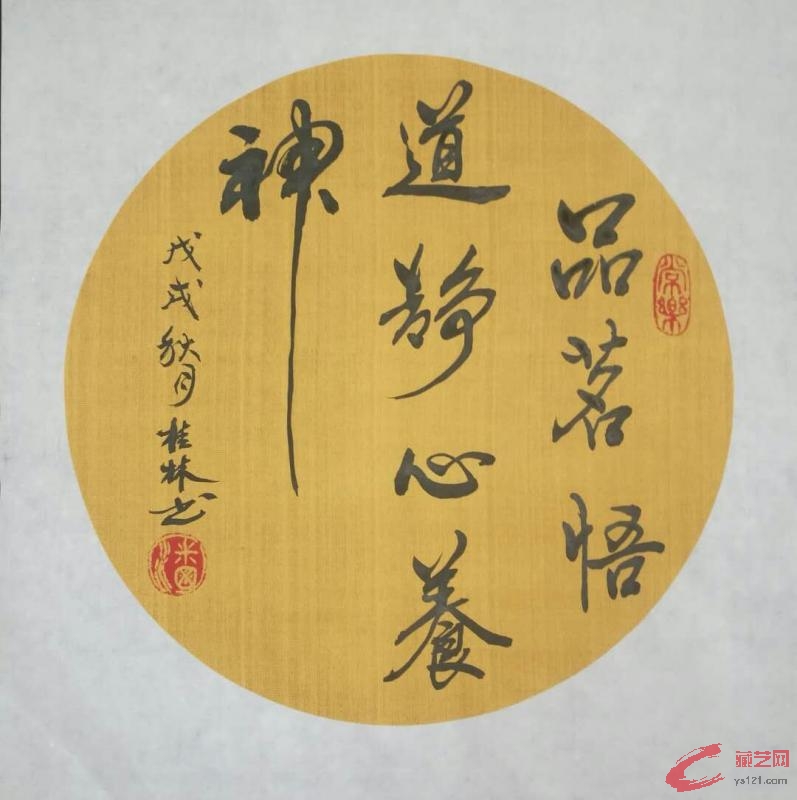 品茗悟
道静心養
神
戊戌秋月桂林书
常樂
藏艺网
ys121.com